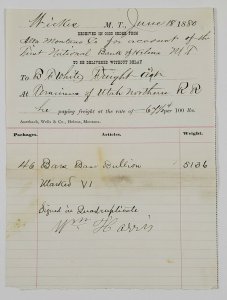 Wickes M. T., June 18 1880
RECEIVED IN GOOD ORDER FROM
Alta Montana Co for account of the
First National Bank of Helena M T
TO BE DELIVERED WITHOUT DELAY
To B F White, Freight Agt
At Terminus of Utah Northern R R
He paying freight at the rate of per 100 lbs.
Auerbach, Wells & Co., Helena, Montana.
Packages. Articles. Weight.
46 Bars Base Bullion 5136
Marked VI
Signed in Quadruplicate
Wm Harris